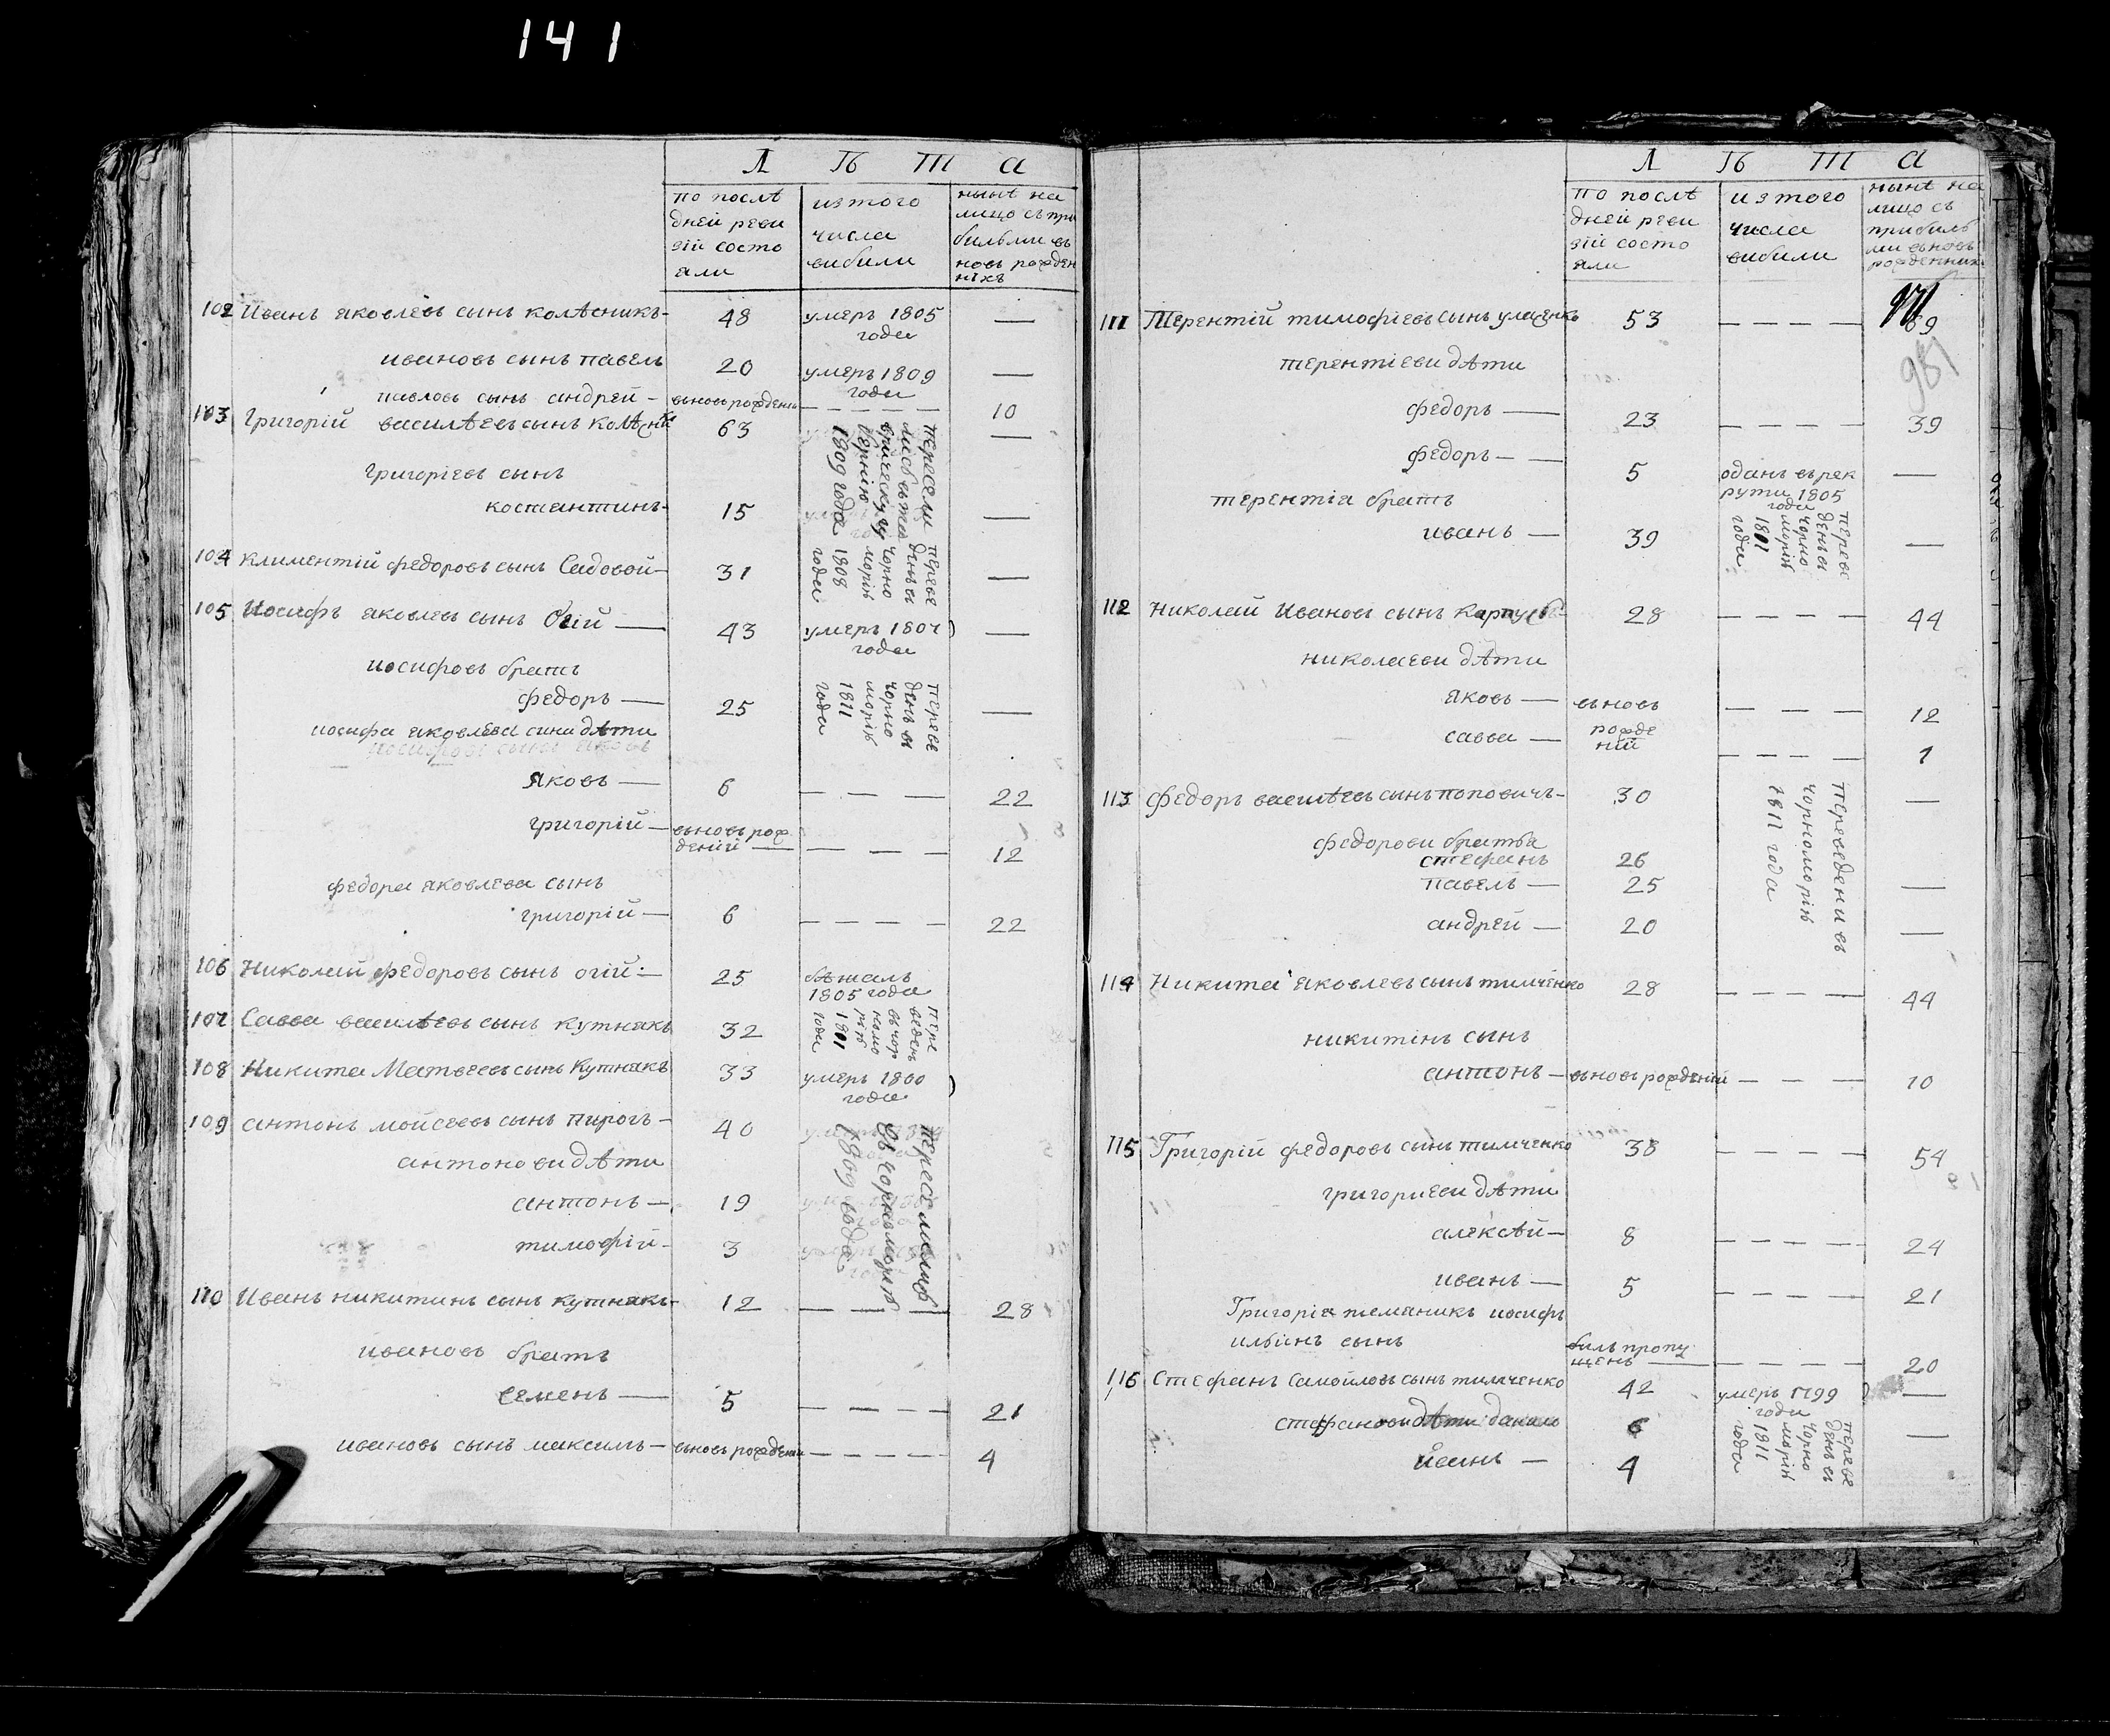 141
Л Ѣ Т А
по послѣ
дней реви
зій состо
яли
изтого
числа
вибили
нынѣ на
лицо съ при
бильми въ
новь рожден
ніхъ
102 Иванъ яковлевъ сынъ колѣсникъ- 48 умеръ 1805 —
года
ивановъ сынъ павелъ 20 умеръ 1809 —
года
павловъ сынъ андрей - вьновърожденъ — — — — 10
103 Григорій василѣевъ сынъ 63 —
Григоріевъ сынъ
костантинъ- 15 —
пересели
1809 года
104 климентій федоровъ сынъ Садовой- 31 —
переве
денъ в
чорно
морію
1808
года
105 Иосифъ яковлевъ сынъ Огій — 43 умеръ 1807 —
года
иосифовъ братъ
федоръ — 25 —
переве
денъ в
чорно
морію
1811
года
иосифа яковлева сина дѣти
яковъ — 6 — — — 22
григорій — вьновь рож
деній — — — — 12
федора яковлева сынъ
григорій — 6 — — — — 22
106 Николай федоровъ сынъ огій:— 25 бѣжалъ
1805 года
107 Савва василѣевъ сынъ кутнякъ 32
пере
веденъ
в чор
номо
рію
1801
года
108 Никита Матвеевъ сынъ Кутнякъ 33 умеръ 1800
года
109 антонъ мойсеевъ сынъ пирогъ - 40
антонови дѣти
антонъ — 19
тимофій - 3
1809 года
110 Иванъ никитинъ сынъ кутнякъ- 12 — — — 28
ивановъ братъ
семенъ — 5 — — — — 21
ивановъ сынъ максимъ — вьновь рожденій — — — — 4
Л Ѣ Т А
по послѣ
дней реви
зій состо
яли
изтого
числа
вибили
нынѣ на
лицо съ
прибиль
ми вьновь
рожденних
111 Терентій тимофіевъ сынъ 53 — — — — 69
951
терентіеви дѣти
федоръ — 23 — — — — 39
федоръ — — 5 одань въ рек —
рути 1805
года
терентія братъ
иванъ — 39 —
переве
денъ в
чорно
морію
1801
года
112 Николай Ивановъ сынъ 28 — — — — 44
николаеви дѣти
яковъ — вьновь — — — — 12
савва — рожде
ній — — — — 1
113 федоръ василѣевъ сынъ поповичъ- 30 —
федорови братья
стефанъ 26
павелъ — 25 —
андрей — 20 —
Переведени въ
чорноморію
1811 года
114 Никита яковлевъ сынъ тимченко 28 — — — — 44
никитінъ сынъ
антонъ — вьновь рожденій — — — 10
115 Григорій федоровъ сынъ тимченко 38 — — — — 54
григориеви дѣти
алексѣй — 8 — — — — 24
иванъ — 5 — — — — 21
Григорія племяникъ иосифъ
ильінъ сынъ билъ пропу
щенъ — — — — — 20
116 Стефанъ Самойловъ сынъ тимченко 42 умеръ 1799 —
года
стефанови дѣти данило 6 —
иванъ — 4
переве
денъ в
чорно
морію
1811
года